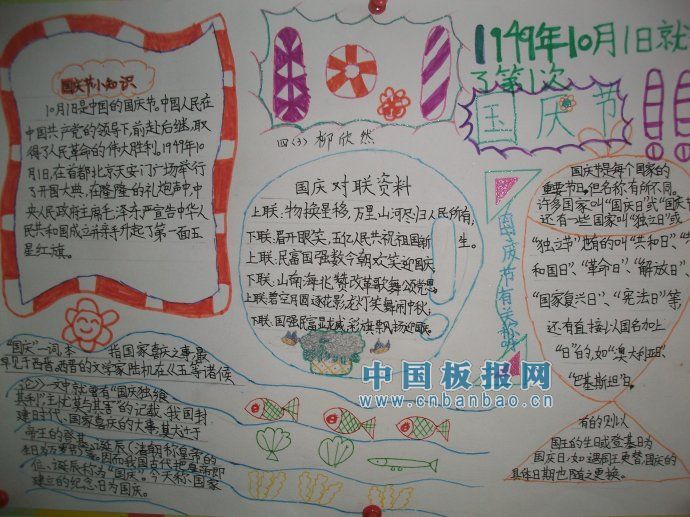 国庆节小知识
10月1日是中国的国庆节。中国人民在
中国共产党的领导下,前赴后继,取
得了人民革命的伟大胜利。1949年10
月1日,在首都北京天安门广场举行
了开国大典,在隆隆的礼炮声中,中
央人民政府主席毛泽东严宣告中华人
民共和国成立并亲手升起了第一面五
星红旗。
四(3) 柳欣然
1949年10月1日就
了第1次
国庆节
国庆对联资料
上联:物换星移,万里山河尽归人民所有,
下联:眉开眼笑,五亿人民共祝祖国新生。
上联:民富国强教今朝欢笑迎国庆,
下联:山南海北赞改革歌舞颂党恩。
上联:碧空月圆逐花影龙灯笑舞闹中秋;
下联:国强民富显龙威彩旗飘扬迎国庆。
国庆节有关的
国庆节是每个国家的
重要节日,但名称有所不同。
许多国家叫“国庆日”或“国庆节
还有一些国家叫“独立日”或
“独立节”也有的叫“共和日”、“共
和国日”、“革命日”、“解放日”、
“国家复兴日”、“宪法日”等
还有直接以国名加上
“日”的,如“澳大利亚日”、
“巴基斯坦日”。
有的则以
国王的生日或登基日为
国庆日,如遇国王更替,国庆的
具体日期也随之更换。
“国庆”一词,本 指国家喜庆之事,最
早见于西晋。西晋的文学家陆机在《五等诸侯
论》一文中就曾有“国庆独飨
其利,主忧莫与其害”的记载、我国封
建时代、国家喜庆的大事,莫大过于
帝王的登基、诞辰(清朝称皇帝的
生日为万岁节)等。因而我国古代把皇帝即
位、诞辰称为“国庆”。今天称国家
建立的纪念日为国庆。
中国板报网
www.cnbanbao.cn